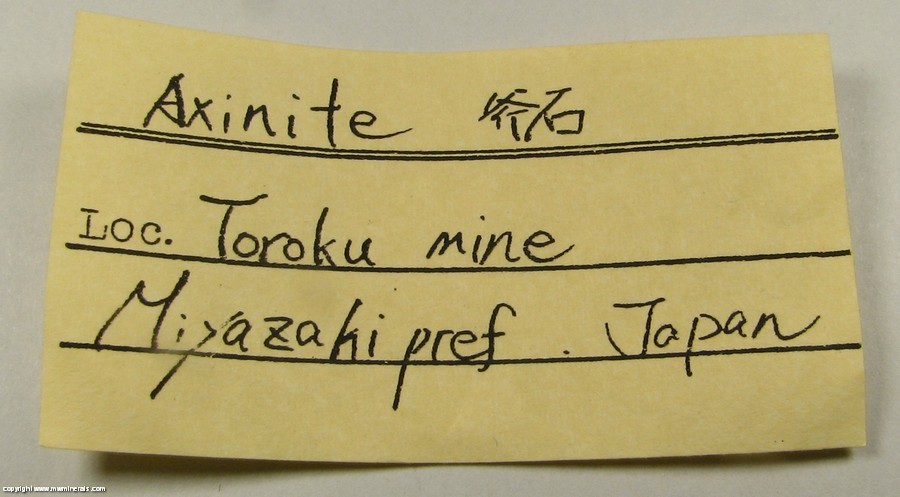 Axinite 斧石
Loc. Toroku mine
Miyazaki pref . Japan
copyright www.mwminerals.com